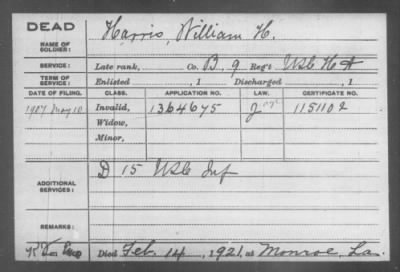 DEAD
NAME OF SOLDIER: Harris, William H.
SERVICE: Late rank, Co. B, 9 Reg't USC H A
TERM OF SERVICE: Enlisted , 1 Discharged , 1
DATE OF FILING. CLASS. APPLICATION NO. LAW. CERTIFICATE NO.
1907 May 10 Invalid, 1364675 1151102
Widow,
Minor,
ADDITIONAL SERVICES: D 15 USC Inf
REMARKS:
Died Feb. 14, 1921, at Monroe, La.